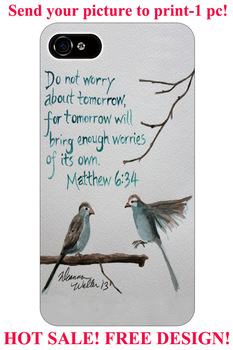 Send your picture to print-1 pc!
Do not worry
about tomorrow,
for tomorrow will
bring enough worries
of it's own.
Matthew 6:34
Deanna
Waller 13
HOT SALE! FREE DESIGN!